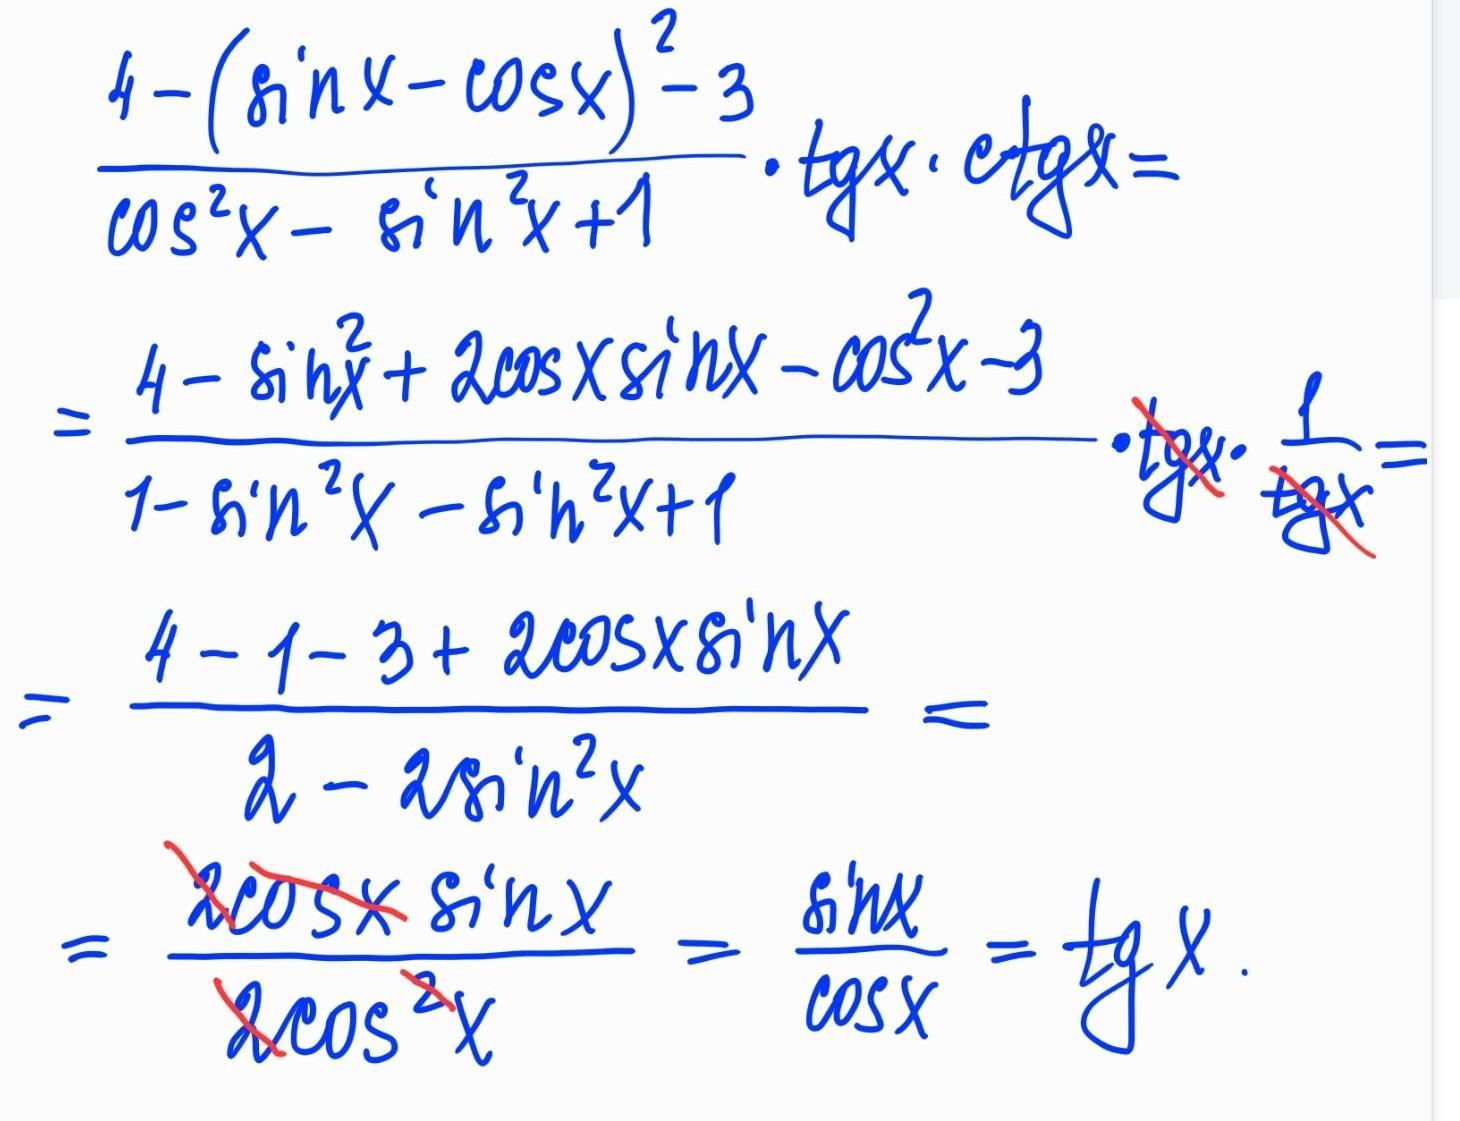 (4-(sinx-cosx)²-3)/(cos²x-sin²x+1) · tgx · ctgx=
= (4-sin²x+2cosxsinx-cos²x-3)/(1-sin²x-sin²x+1) · tgx · 1/tgx =
= (4-1-3+2cosxsinx)/(2-2sin²x) =
= (2cosx sinx)/(2cos²x) = sinx/cosx = tgx.